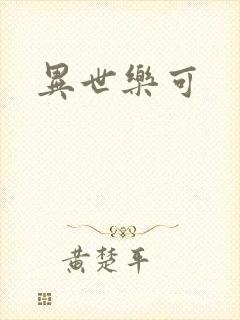 異世樂可
黃楚平